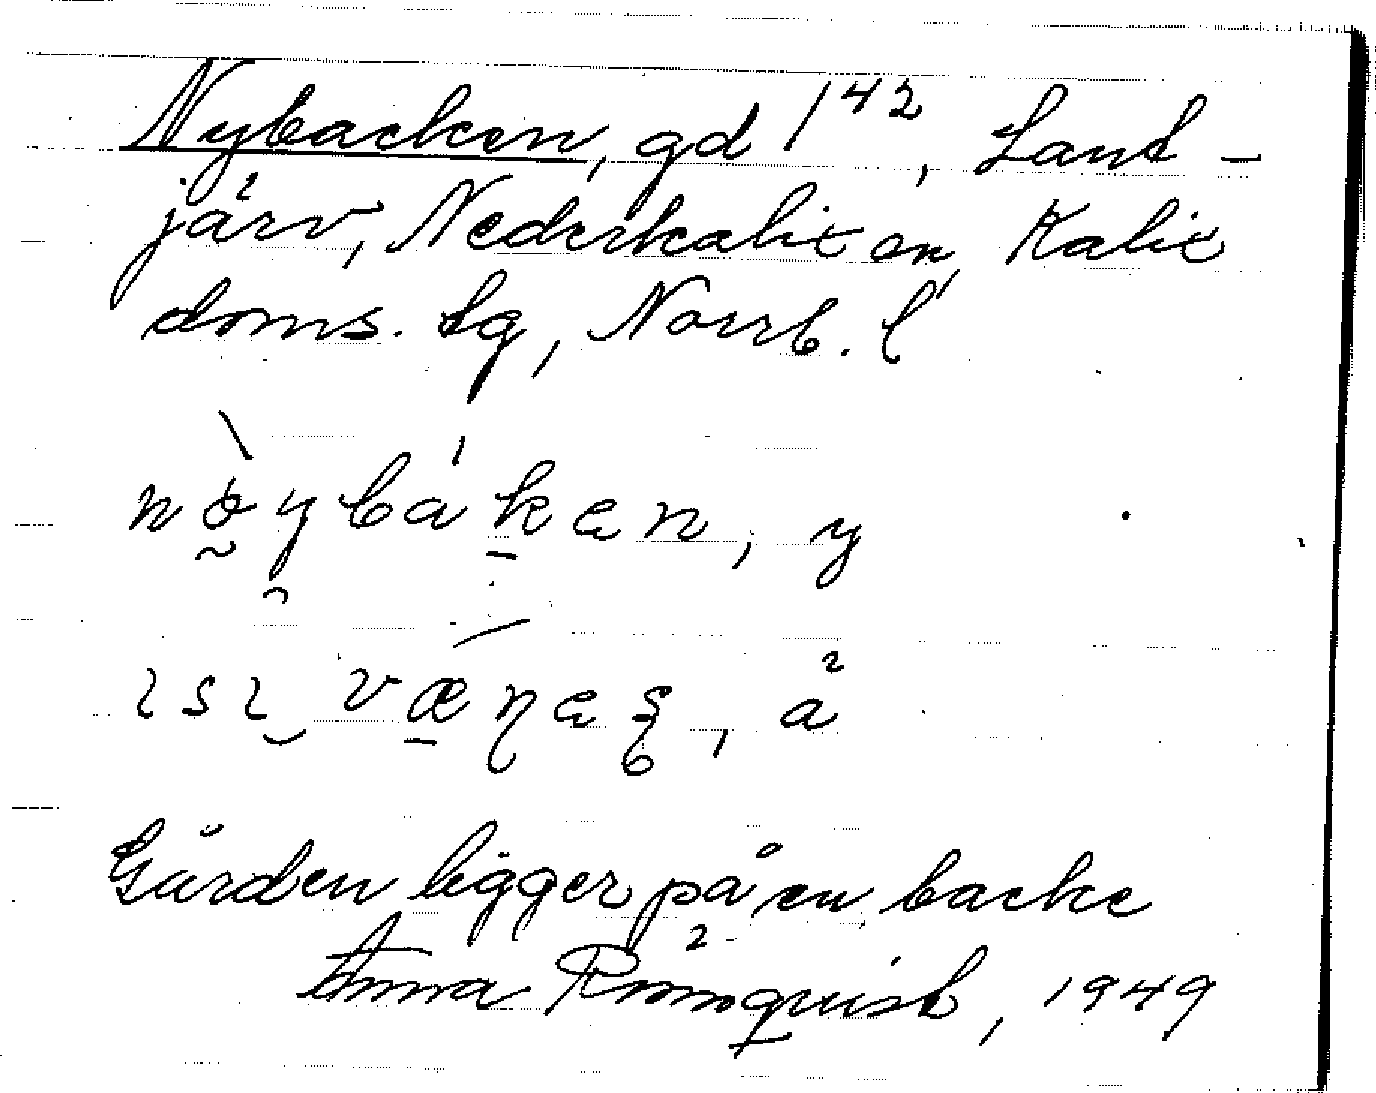 Nybacken, gd 1⁴², Lant-
järv, Nederkalix sn, Kalix
doms. tg, Norrb. l
nø̀ybákən, y
ɩsɩ væ̱ɳəʂ, å
Gården ligger på en backe
Anna Rönnquist, 1949